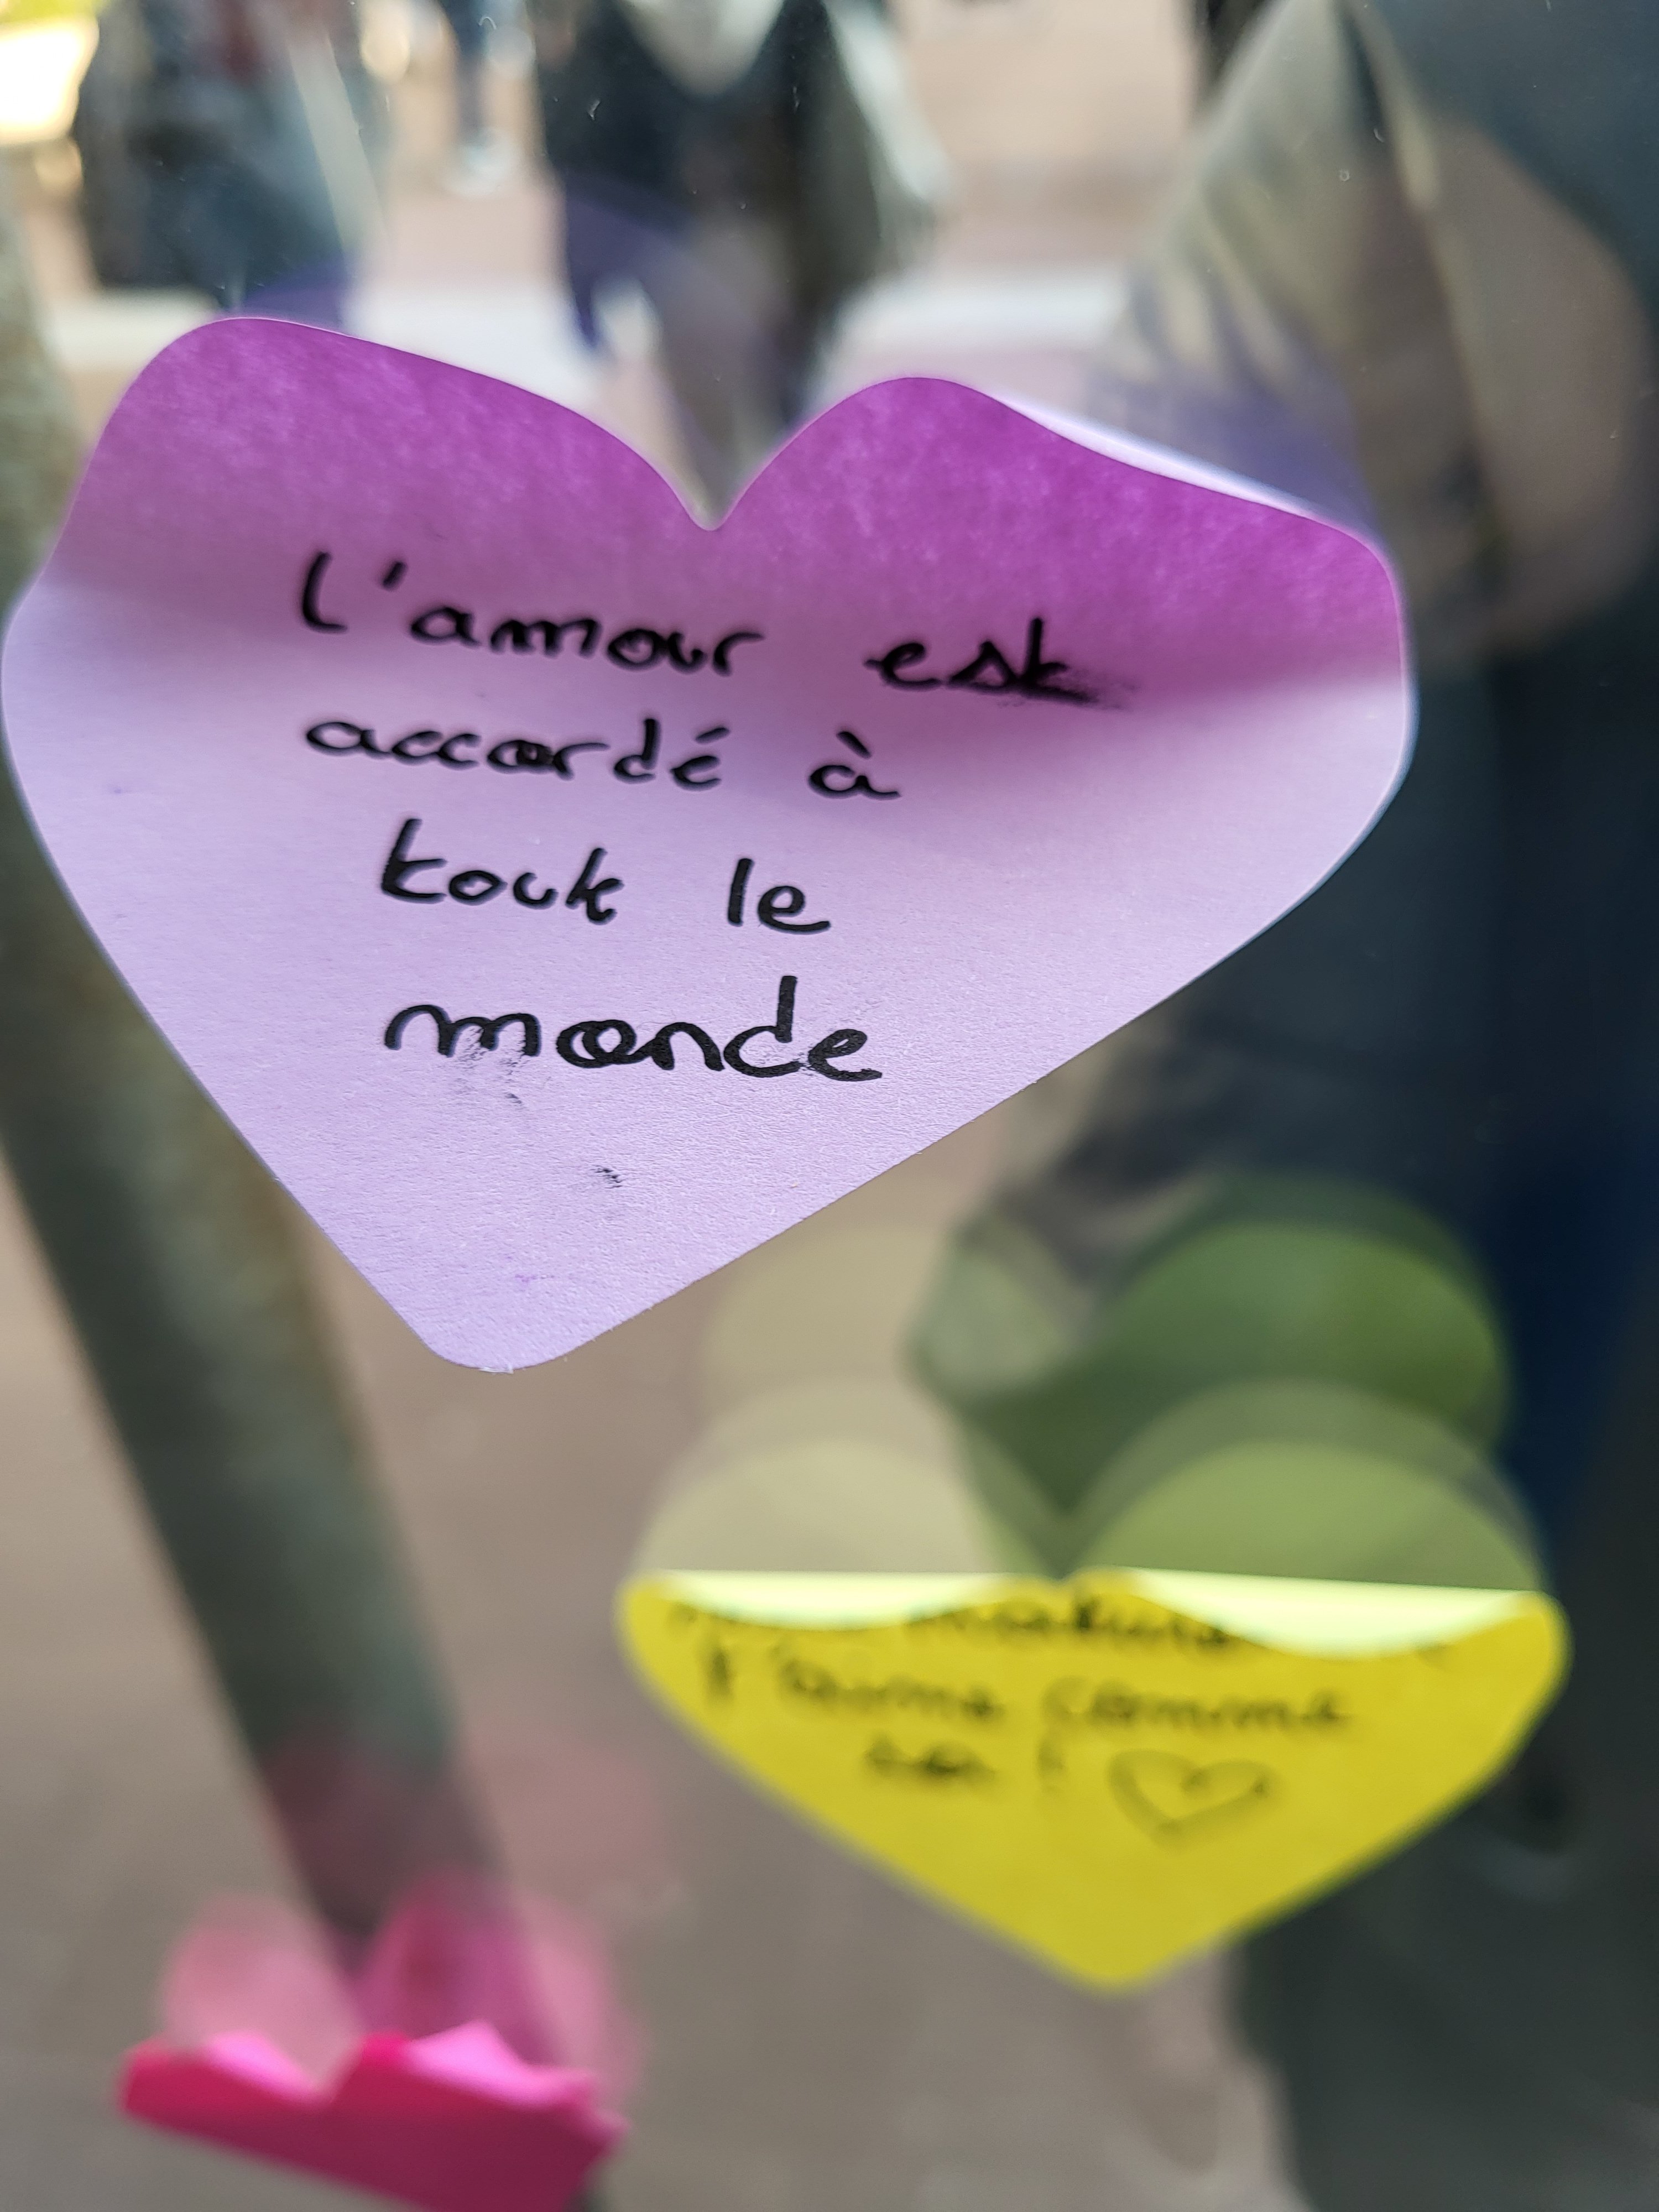 L'amour est
accordé à
tout le
monde
t'aime comme
toi !